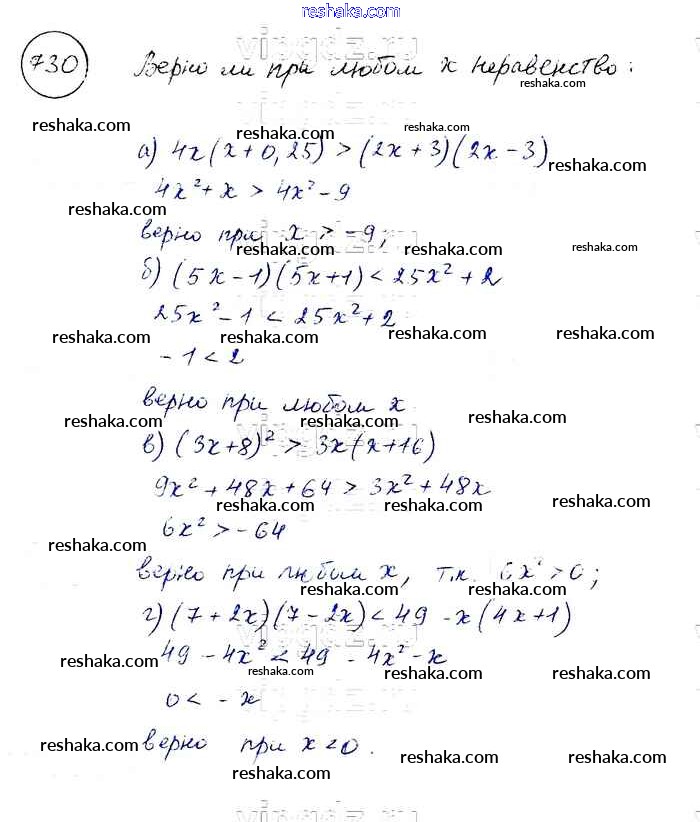 www.reshaka.com
reshaka.com
730 Верно ли при любом x неравенство:
reshaka.com
reshaka.com reshaka.com
а) 4x(x+0,25) > (2x+3)(2x-3)
reshaka.com
4x²+x > 4x²-9
reshaka.com
верно при x > -9;
reshaka.com reshaka.com reshaka.com
б) (5x-1)(5x+1) < 25x²+2
25x²-1 < 25x²+2
reshaka.com reshaka.com reshaka.com
-1 < 2
верно при любом x
reshaka.com reshaka.com
в) (3x+8)² > 3x(x+16)
9x²+48x+64 > 3x²+48x
reshaka.com reshaka.com
6x² > -64
reshaka.com
верно при любом x, т.к. 6x² > 0;
reshaka.com reshaka.com
г) (7+2x)(7-2x) < 49 - x(4x+1)
49 - 4x² < 49 - 4x² - x
reshaka.com reshaka.com reshaka.com
0 < -x
верно при x < 0.
reshaka.com reshaka.com
reshaka.com